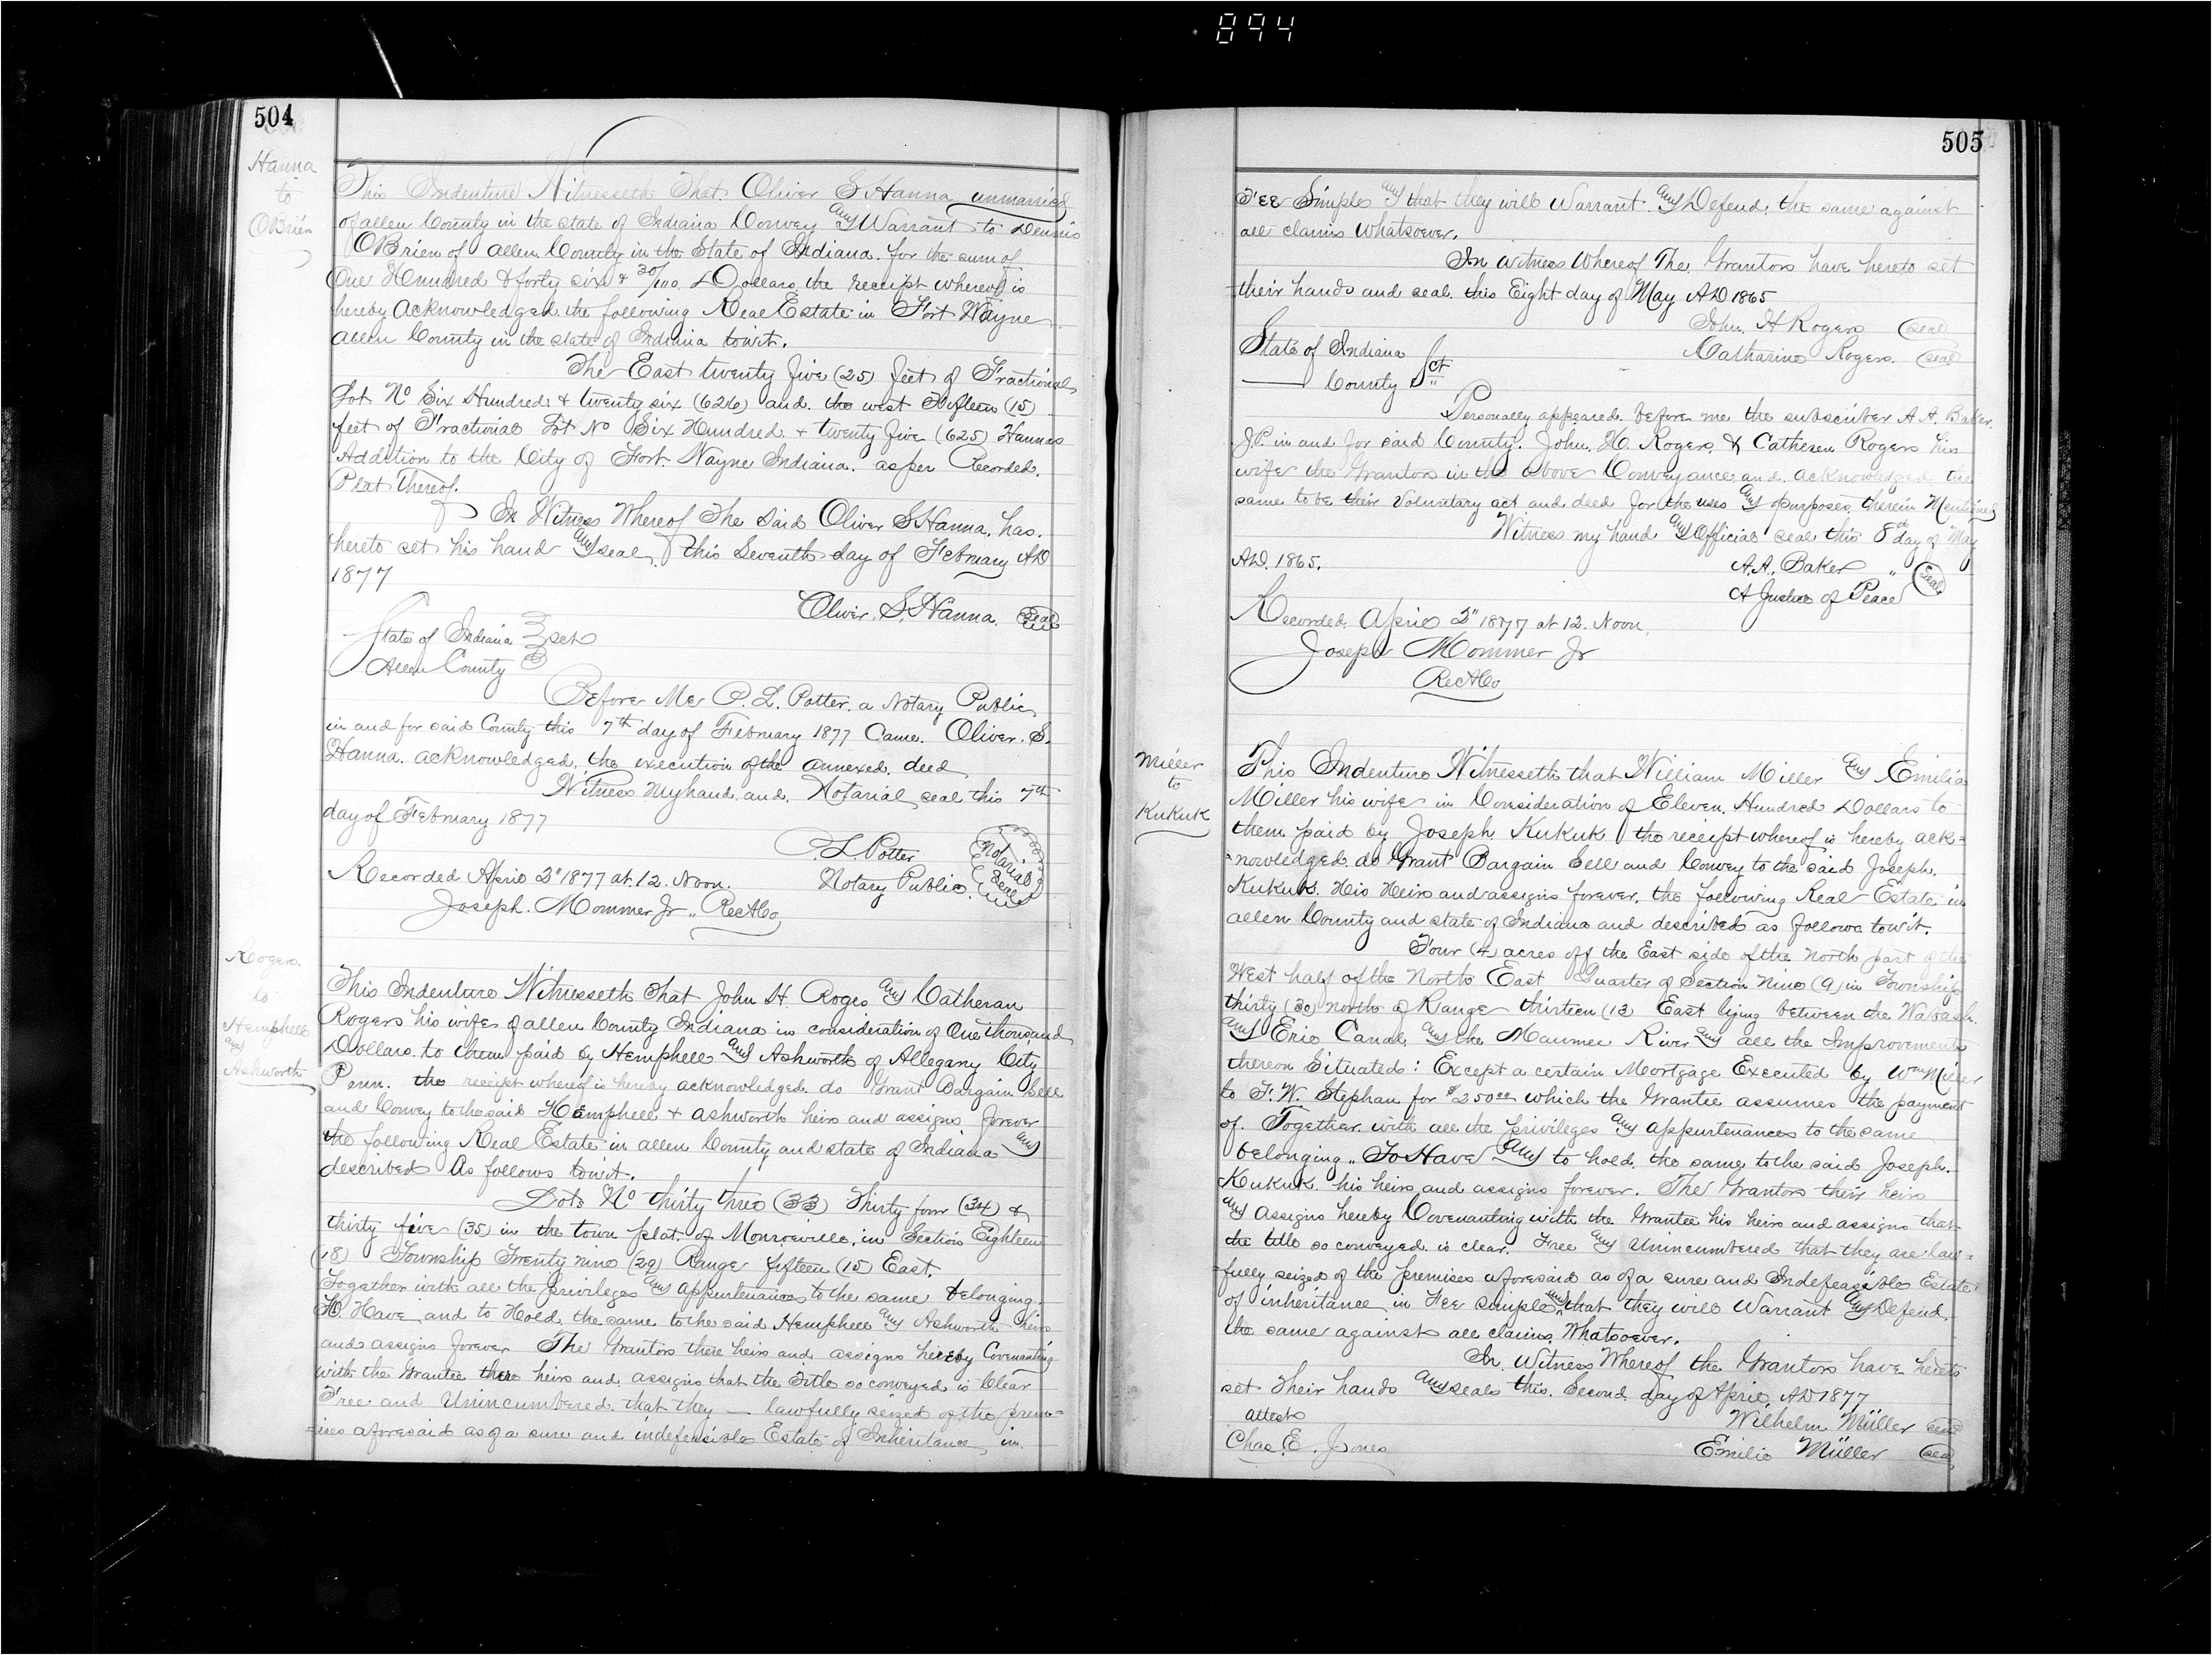 894
504
Hanna
to
OBrien
This Indenture Witnesseth That Oliver S Hanna unmarried
of allen County in the state of Indiana Convey and Warrant to Dennis
OBrien of allen County in the State of Indiana for the sum of
One Hundred & forty six & 30/100 Dollars, the receipt whereof is
hereby acknowledged the following Real Estate in Fort Wayne
allen County in the state of Indiana towit.
The East twenty five (25) feet of Fractional
Lot No Six Hundred & twenty six (626) and the west Fifteen (15)
feet of Fractional Lot No Six Hundred & twenty five (625) Hannas
Addition to the City of Fort Wayne Indiana. as per Recorded
Plat thereof.
In Witness Whereof The Said Oliver S Hanna, has
hereto set his hand and seal this Seventh day of February AD
1877
Oliver. S. Hanna. Seal
State of Indiana } sct
Allen County
Before Me P. L. Potter. a Notary Public
in and for said County this 7th day of February 1877 Came. Oliver. S.
Hanna. acknowledged, the execution of the annexed. deed
Witness my hand. and. Notarial seal this 7th
day of February 1877
P. L. Potter
Notary Public
Notarial Seal
Recorded April 2" 1877 at 12. Noon.
Joseph. Mommer Jr.. RecACo
Rogers.
to
Hemphell
and
Ashworth
This Indenture Witnesseth That John H Roges and Catheran
Rogers his wife of allen County Indiana in consideration of One thousand
Dollars. to them paid by Hemphell and Ashworth of Allegany City
Penn. the receipt whereof is hereby acknowledged. do Grant Bargain Sell
and Convey to the said Hemphell & ashworth heirs and assigns forever
the following Real Estate in allen County and state of Indiana and
described As follows towit.
Lots No thirty three (33) Thirty four (34) &
thirty five (35) in the town plat of Monroeville, in Section Eighteen
(18) Township Twenty nine (29) Range fifteen (15) East.
Together with all the privileges and appurtenances to the same belonging.
To Have and to Hold the same to the said Hemphell and Ashworth heirs
and assigns forever The Grantors there heirs and assigns hereby Covenanting
with the Grantee there heirs and assigns that the Title so conveyed is Clear
Free and Unincumbered. that they — lawfully seized of the prem=
=ises aforesaid as of a sure and indefeasible Estate of Inheritance in
505
Fee Simple and that they will Warrant and Defend. the same against
all claims whatsoever.
In witness Whereof The Grantors have hereto set
their hands and seal. this Eight day of May AD 1865
John. H Rogers Seal
Catharine Rogers. Seal
State of Indiana } Sct
—— County
Personally appeared. before me the subscriber A A. Baker.
J.P. in and for said County. John. H. Rogers, & Catheren Rogers his
wife the Grantors in the above Conveyance and. acknowledged the
same to be their Voluntary act and deed for the uses and purposes therein Mentioned
Witness my hand and Official seal this 8th day of May
AD. 1865.
A.A. Baker " Seal
A Justice of Peace
Recorded April 2" 1877 at 12. Noon.
Joseph Mommer Jr
RecACo
Miller
to
Kukuk
This Indenture Witnesseth that William Miller and Emilia
Miller his wife in Consideration of Eleven Hundred Dollars to
them paid by Joseph Kukuk the receipt whereof is hereby ack=
=nowledged do Grant Bargain Sell and Convey to the said Joseph.
Kukuk. His Heirs and assigns forever, the following Real Estate in
allen County and state of Indiana and described as follows towit.
Four (4) acres off the East side of the north part of the
West half of the North East Quarter of Section Nine (9) in Township
thirty (30) north of Range thirteen (13 East lying between the Wabash
and Erie Canal and the Maumee River and all the Improvements
thereon Situated: Except a certain Mortgage Executed by Wm Miller
to F. W. Stephan for $250oo which the Grantee assumes the payment
of. Together with all the privileges and appurtenances to the same
belonging.. To Have and to hold. the same to the said Joseph.
Kukuk. his heirs and assigns forever. The Grantors their heirs
and Assigns hereby Covenanting with the Grantee his heirs and assigns that
the title so conveyed is clear. Free and Unincumbered that they are law=
=fully seized of the premises aforesaid as of a sure and Indefeasible Estate
of inheritance in Fee simple and that they will Warrant and Defend.
the same against all claims, Whatsoever.
In Witness Whereof the Grantors have hereto
set their hands and seals this. Second day of April, AD 1877
attest
Wilhelm Müller seal
Chas. E. Jones
Emilie Müller seal